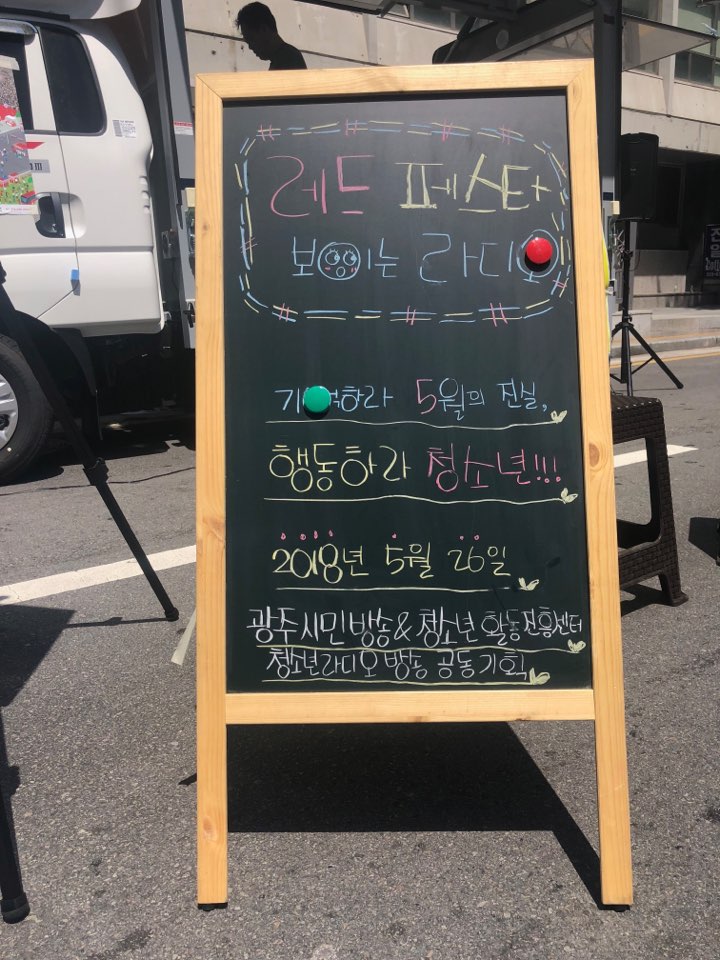 레드 페스타
보이는 라디오
기억하라 5월의 진실,
행동하라 청소년!!!
2018년 5월 26일
광주시민방송&청소년 활동진흥센터
청소년라디오 방송 공동기획